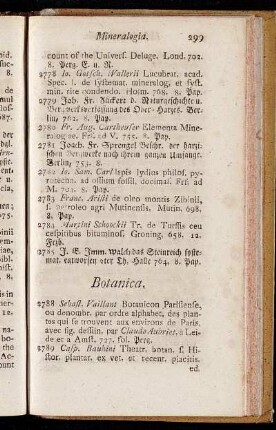 Mineralogia. 299
count of the Univers. Deluge. Lond. 702.
8. Perg. E. u. R.
2778 Io. Gotsch. Wallerii Lucubrat. acad.
Spec. I. de systemat. mineralog. et syst.
min. rite condendo. Holm. 768. 8. Pap.
2779 Joh. Fr. Zückert d. Naturgeschichte u.
Bergwerksverfassung des Ober-Harzes. Ber-
lin, 762. 8. Pap.
2780 Fr. Aug. Cartheuser Elementa Mine-
ralogiae. Frf. ad V. 755. 8. Pap.
2781 Joach. Fr. Sprengel Beschr. der harzi-
schen Bergwerke nach ihrem ganzen Umfange.
Berlin, 753. 8.
2782 Io. Sam. Carl lapis lydius philos. py-
rotechn. ad ossium fossil. docimas. Frf. ad
M. 704. 8. Pap.
2783 Franc. Aristi de oleo montis Zibinii,
s. petroleo agri Mutinensis. Mutin. 698,
8. Pap.
2784 Martini Schoockii Tr. de Turffis ceu
cespitibus bituminos. Groning. 658. 12.
2785 J. E. Imm. Walch das Steinreich syste-
mat. entworfen 2ter Th. Halle 764. 8. Pap.
Botanica.
2788 Sebast. Vaillant Botanicon Parisiense,
ou denombr. par ordre alphabet. des plan-
tes qui se trouvent aux environs de Paris,
avec fig. dessin. par Claude Aubriet. à Lei-
de et a Amst. 727. fol. Perg.
2789 Casp. Bauhini Theatr. botan. s. Hi-
stor. plantar. ex vet. et recent. placitis.
ed.